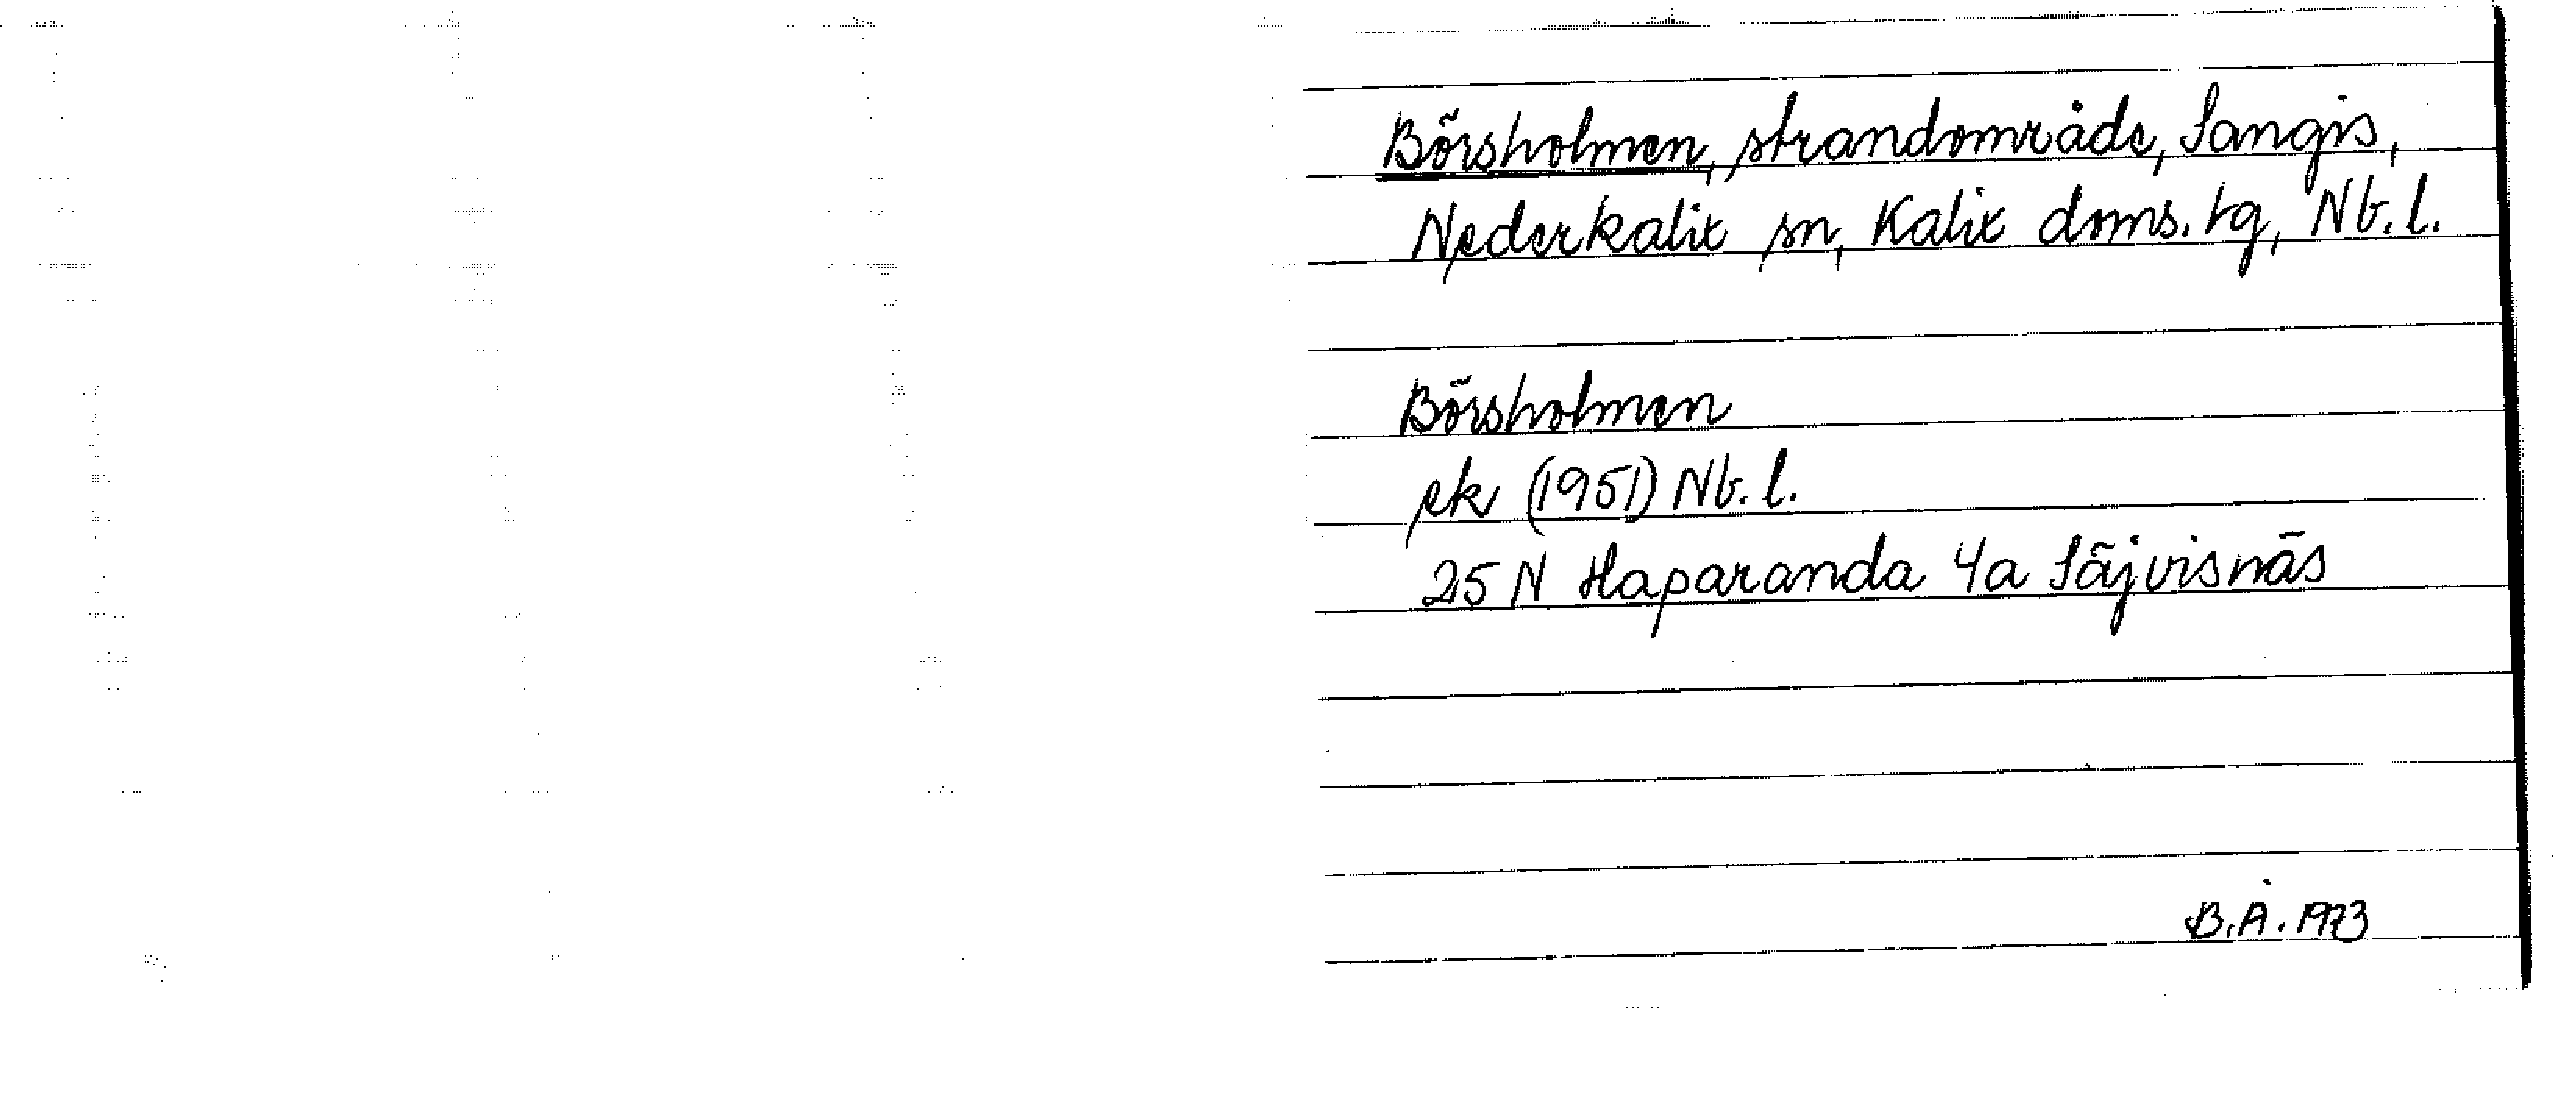 Börsholmen, strandområde, Sangis,
Nederkalix sn, Kalix doms. tg, Nb. l.
Börsholmen
ek (1951) Nb. l.
25 N Haparanda 4a Säjvisnäs
B.Å. 1973